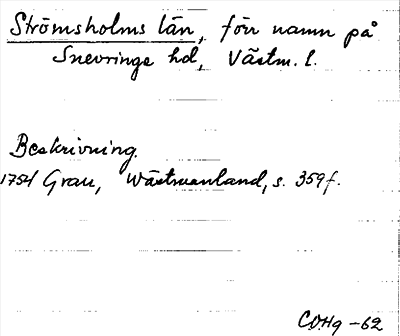 Strömsholms län, förr namn på
Snevringe hd, Västm. l.
Beskrivning.
1754 Grau, Wästmanland, s. 359 f.
CDHg -62